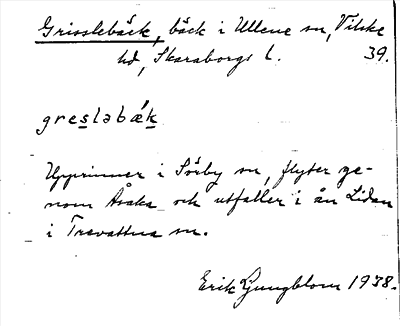 Grisslebäck, bäck i Ullene sn, Vilske
hd, Skaraborgs l. 39.
greslabäk
Upprinner i Sörby sn, flyter ge-
nom Åsaka och utfaller i ån Lidan
i Travattna sn.
Erik Ljungblom 1938.